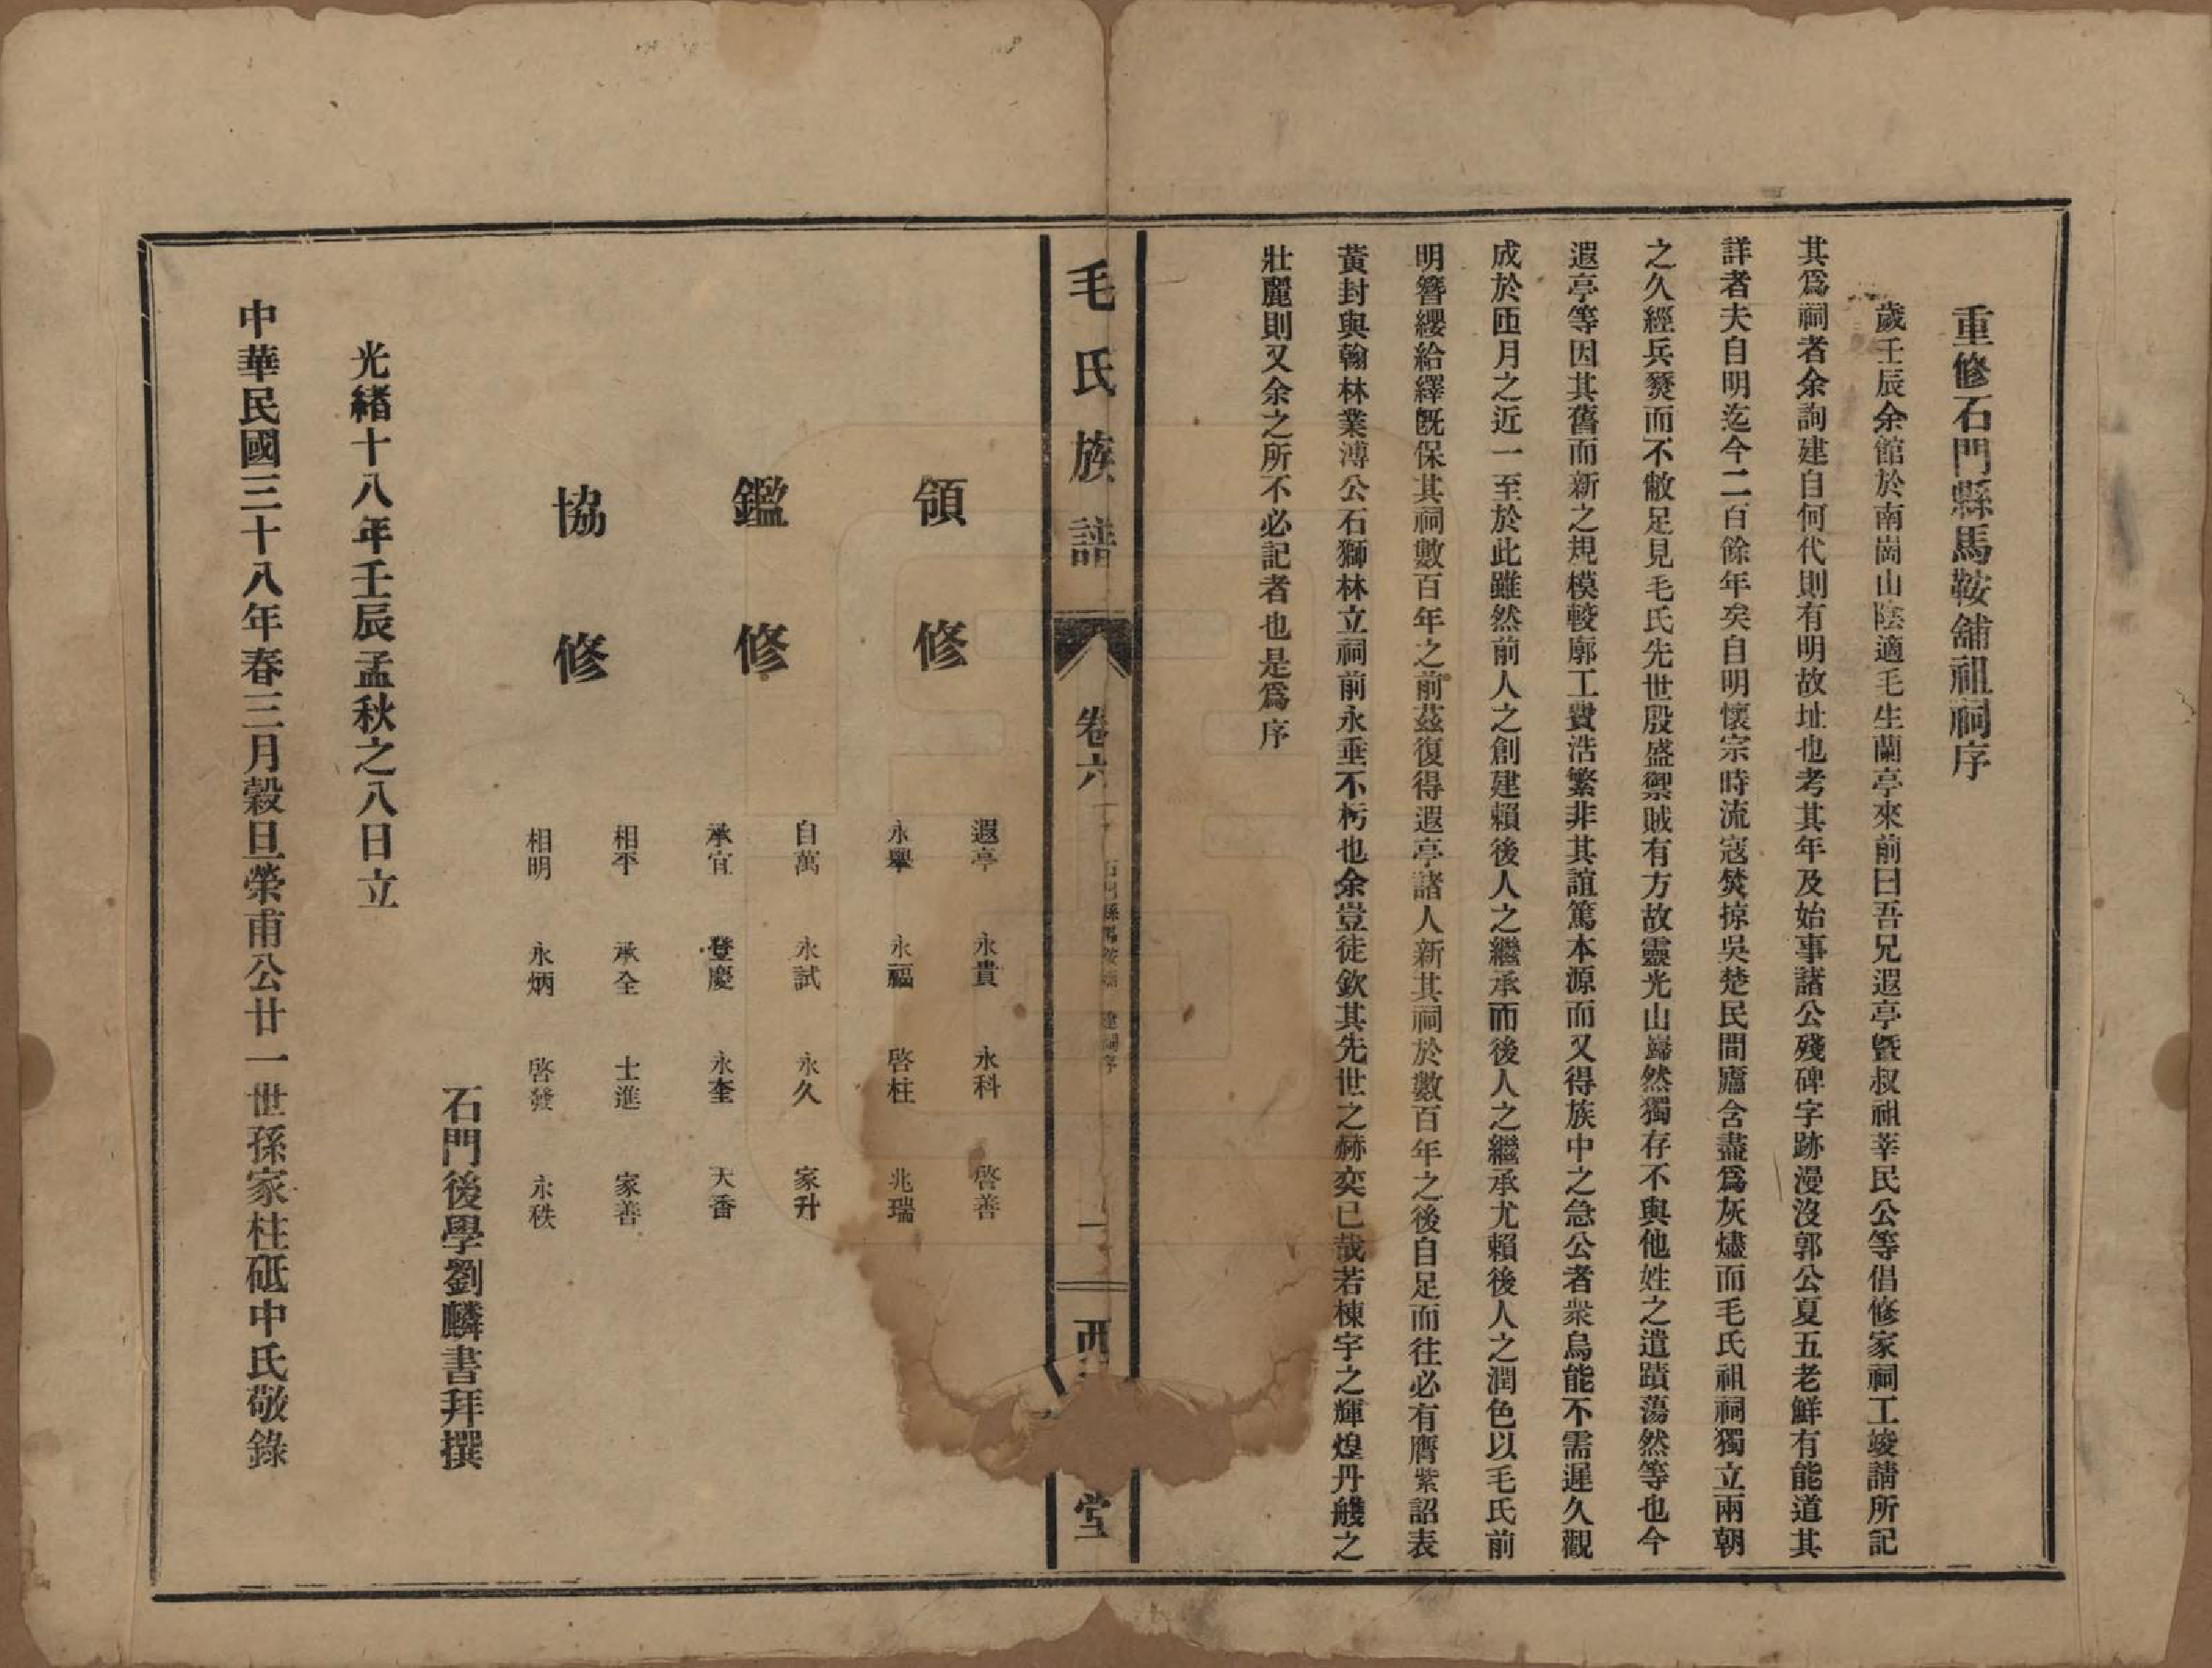 重修石門縣馬鞍舖祖祠序
歲壬辰余館於南崗山陰適毛生蘭亭來前曰吾兄遐亭暨叔祖莘民公等倡修家祠工竣請所記
其爲祠者余詢建自何代則有明故址也考其年及始事諸公殘碑字跡漫沒郭公夏五老鮮有能道其
詳者夫自明迄今二百餘年矣自明懷宗時流寇焚掠吳楚民間廬含盡爲灰燼而毛氏祖祠獨立兩朝
之久經兵燹而不敝足見毛氏先世殷盛禦賊有方故靈光山巋然獨存不與他姓之遺蹟蕩然等也今
遐亭等因其舊而新之規模較廓工費浩繁非其誼篤本源而又得族中之急公者衆烏能不需遲久觀
成於匝月之近一至於此雖然前人之創建賴後人之繼承而後人之繼承尤賴後人之潤色以毛氏前
明簪纓給繹旣保其祠數百年之前茲復得遐亭諸人新其祠於數百年之後自足而往必有膺紫詔表
黃封與翰林業溥公石獅林立祠前永垂不朽也余豈徒欽其先世之赫奕已哉若棟宇之輝煌丹艧之
壯麗則又余之所不必記者也是爲序
毛氏族譜 卷六 石門縣馬鞍舖 建祠序 一 西 堂
領修 遐亭 永貴 永科 啓善
永舉 永福 啓柱 兆瑞
鑑修 自萬 永試 永久 家升
承宜 登慶 永奎 天香
協修 相平 承全 士進 家善
相明 永炳 啓發 永秩
石門後學劉麟書拜撰
光緒十八年壬辰孟秋之八日立
中華民國三十八年春三月穀旦榮甫公廿一世孫家柱砥中氏敬錄